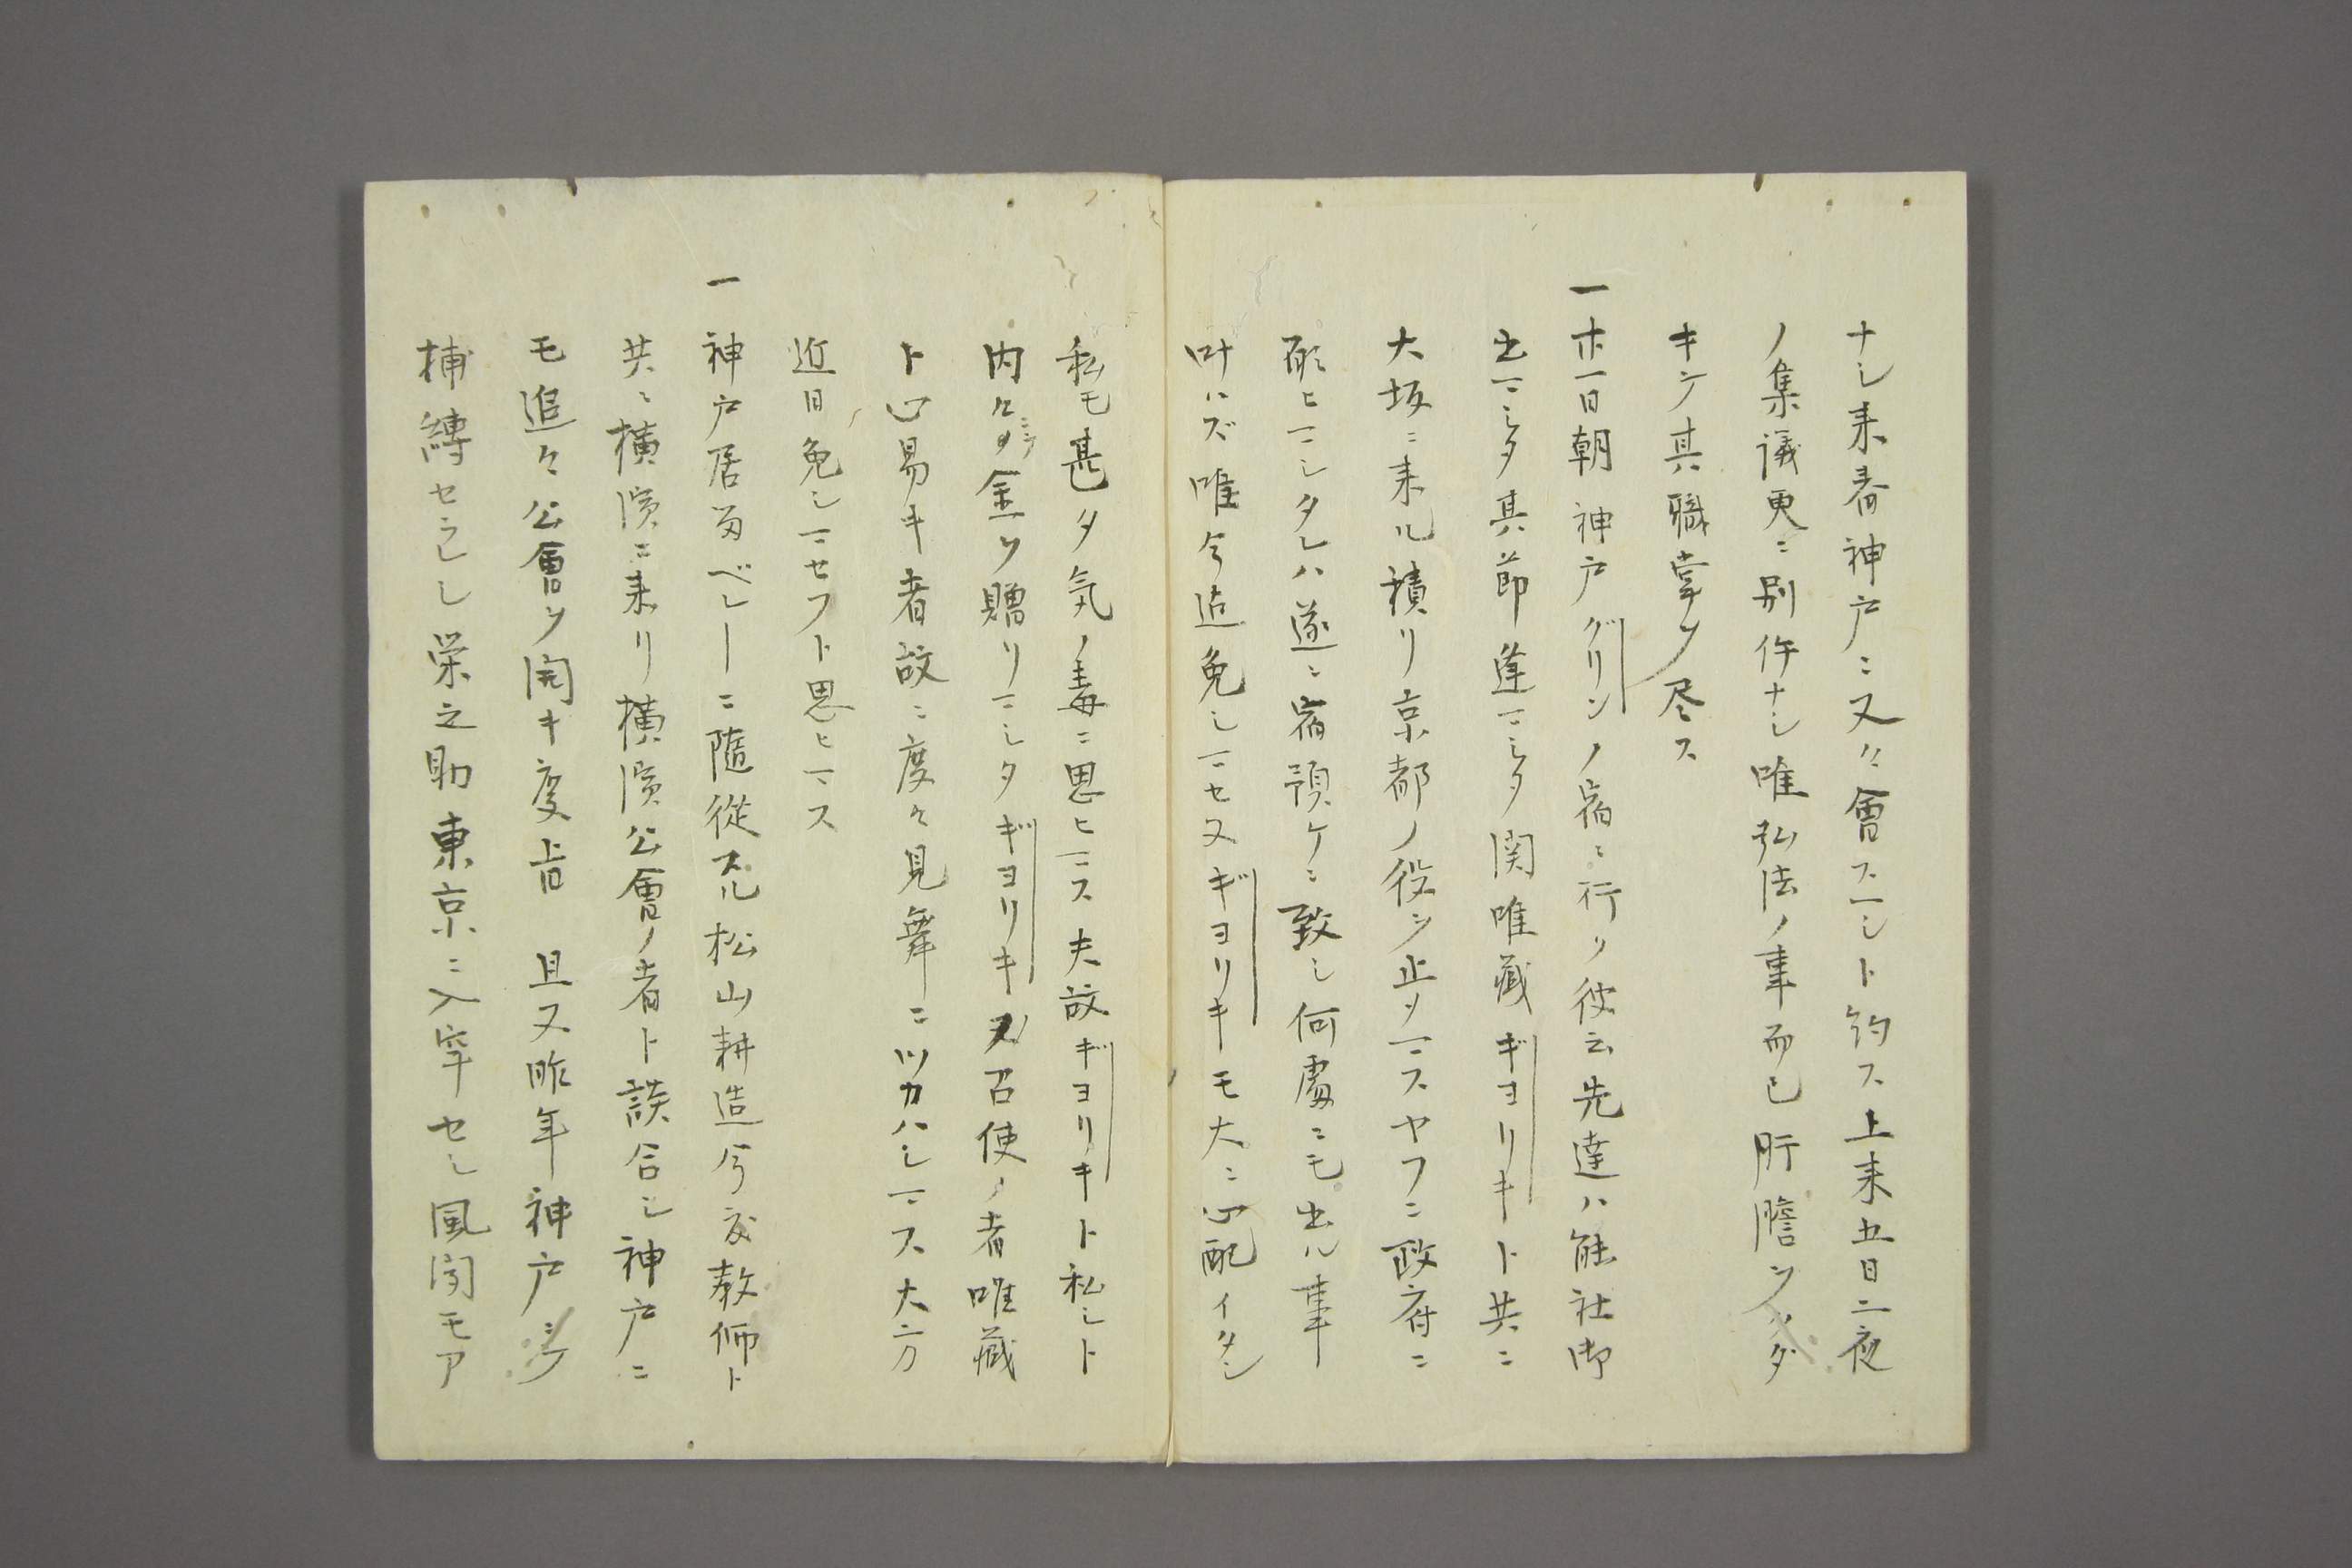 ナシ来春神戸ニ又〻會スヘシト約ス上来五日二夜
ノ集議更ニ別件ナシ唯弘法ノ事而已肝膽ヲクダ
キテ其職掌ヲ尽ス
一廿一日朝神戸グリンノ宿ニ行ク彼云先達ハ能社御
出マシタ其節逢マシタ関唯蔵ギヨリキト共ニ
大坂ニ来ル積リ京都ノ役ヲ止リマスヤフニ政府ニ
願ヒマシタレハ遂ニ宿預ケニ致シ何處ニモ出ル事
叶ハズ唯今迠免シマセヌギヨリキモ大ニ心配イタシ
私モ甚タ気ノ毒ニ思ヒマス夫故ギヨリキト私シト
内々ニテ金ヲ贈リマシタギヨリキ召使ノ者唯蔵
ト心易キ者故ニ度々見舞ニツカハシマス大方
近日免シマセフト思ヒマス
一神戸居留ベレーニ隨従スル松山耕造今度教師ト
共ニ横濱ニ来リ横濱公會ノ者ト談合シ神戸ニ
モ追々公會ヲ開キ度旨且又昨年神戸ニテ
捕縛セラレシ栄之助東京ニ入牢セシ風聞モア